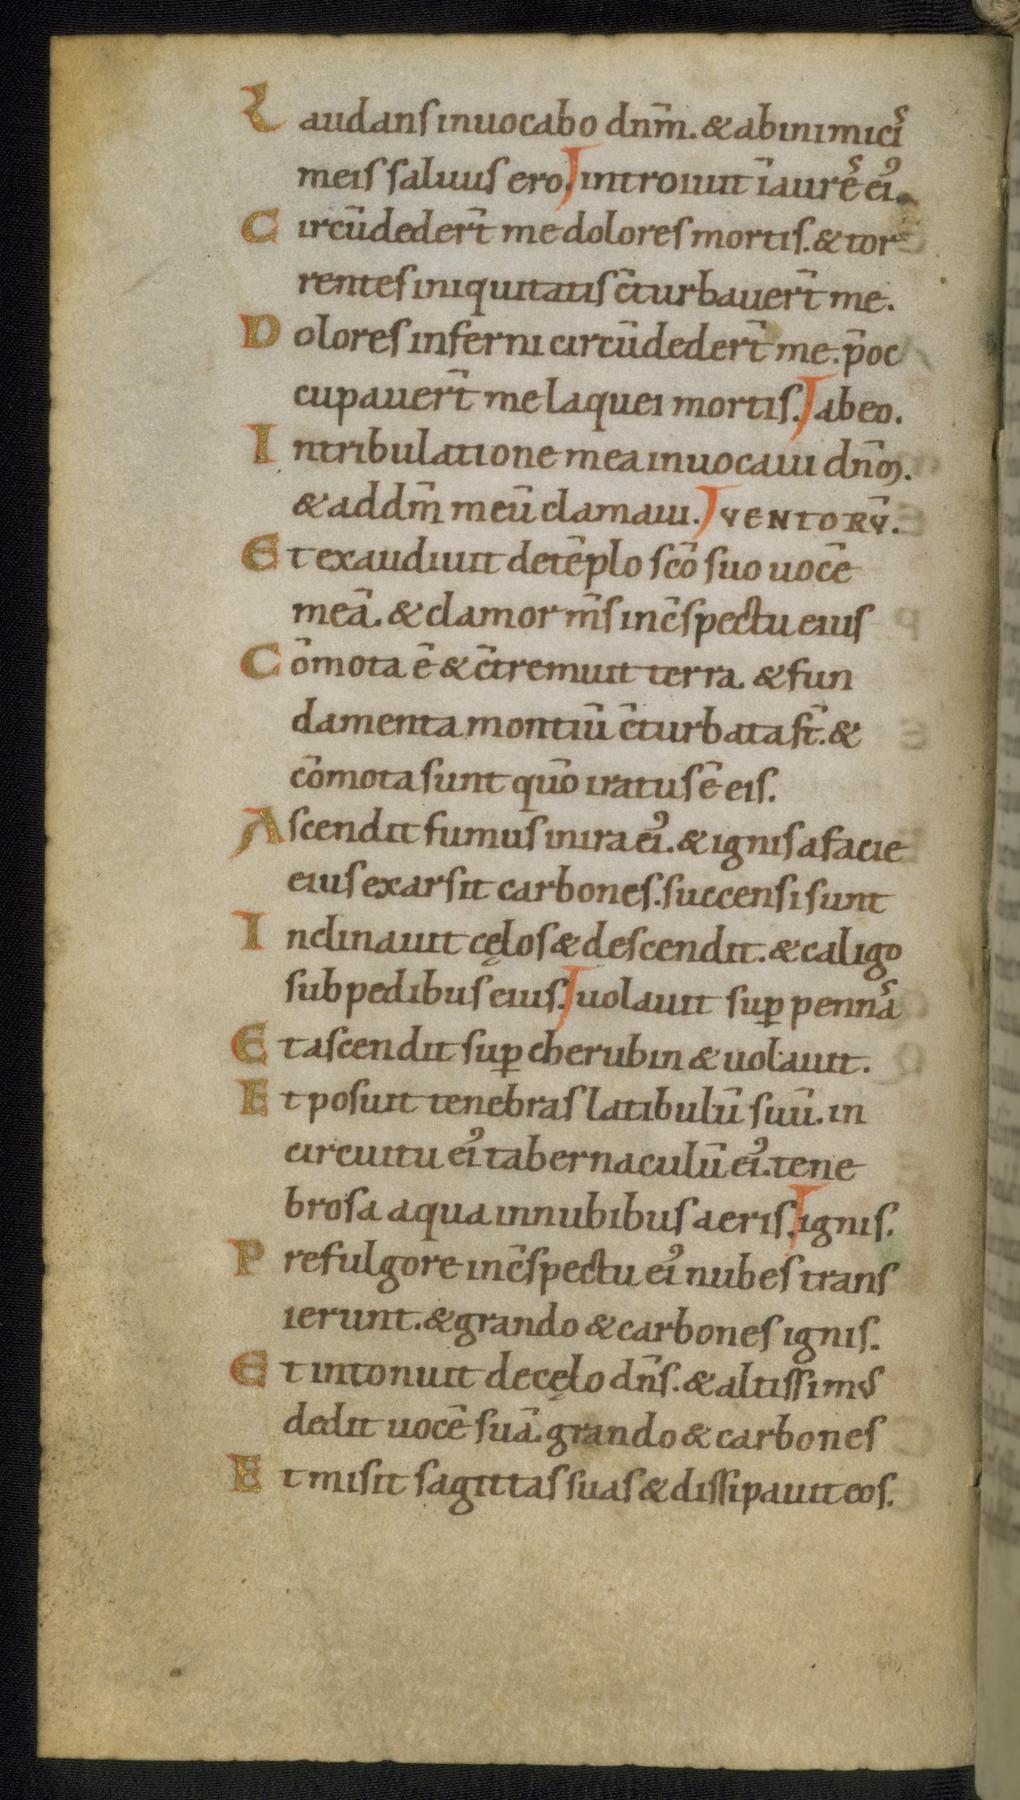 Laudans inuocabo dnm̄. & ab inimicis
meis saluus ero. introiuit ī aurēs ei᾿.
Circūdedert̄ me dolores mortis. & tor
rentes iniquitatis c̄turbauert̄ me.
Dolores inferni circūdedert̄ me. p̄oc
cupauert̄ me laquei mortis. ab eo.
In tribulatione mea inuocaui dnm̄.
& ad dm̄ meū clamaui. VENTORV̄.
Et exaudiuit de tēplo scō suo uocē
meā. & clamor ms̄ in c̄spectu eius
Cōmota ē & c̄tremuit terra. & fun
damenta montiū c̄turbata st̄. &
cōmota sunt quō iratus ē eis.
Ascendit fumus in ira ei᾿. & ignis a facie
eius exarsit carbones. succensi sunt
Inclinauit cęlos & descendit. & caligo
sub pedibus eius. uolauit sup̱ pennas
Et ascendit sup̱ cherubin & uolauit.
Et posuit tenebras latibulū suū. in
circuitu ei᾿ tabernaculū ei᾿. tene
brosa aqua in nubibus aeris. ignis.
Pre fulgore in c̄spectu ei᾿ nubes trans
ierunt. & grando & carbones ignis.
Et intonuit de cęlo dns̄. & altissimus
dedit uocē suā. grando & carbones
Et misit sagittas suas & dissipauit eos.